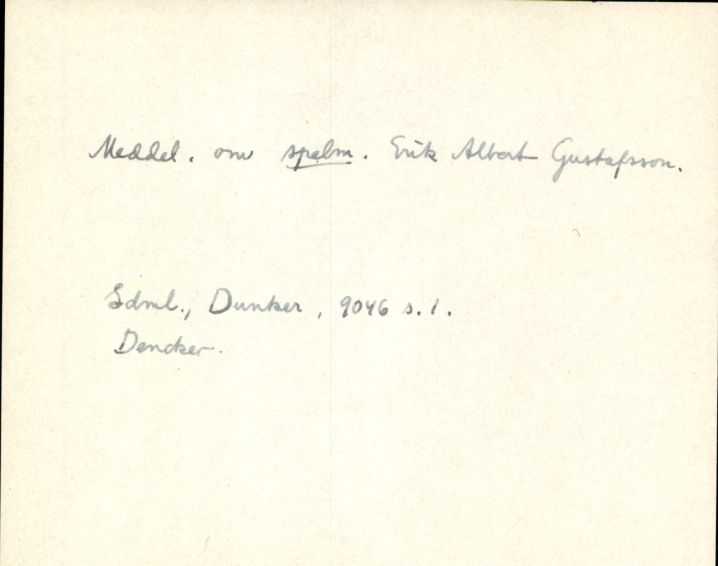 Meddel. om spelm. Erik Albert Gustafsson.
Sdml., Dunker, 9046 s. 1.
Dencker.